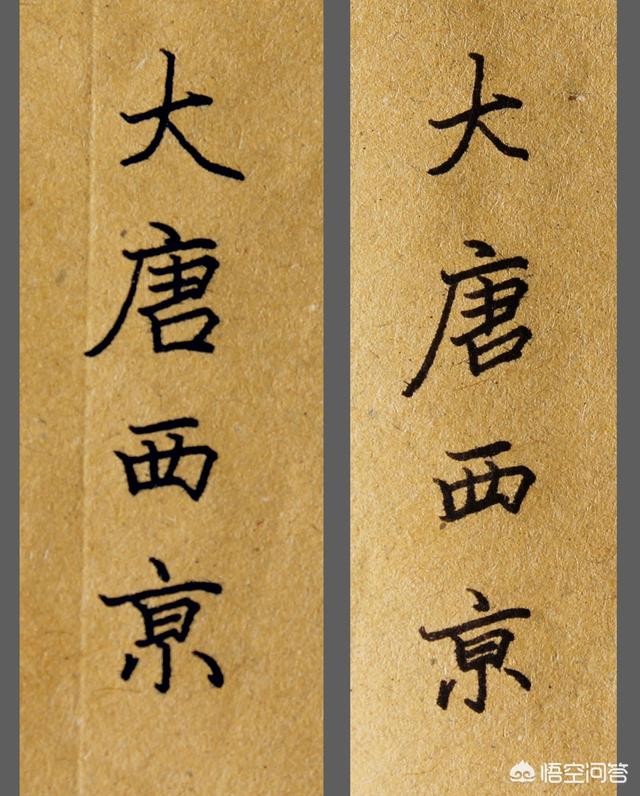 大唐西京
大唐西京
悟空问答